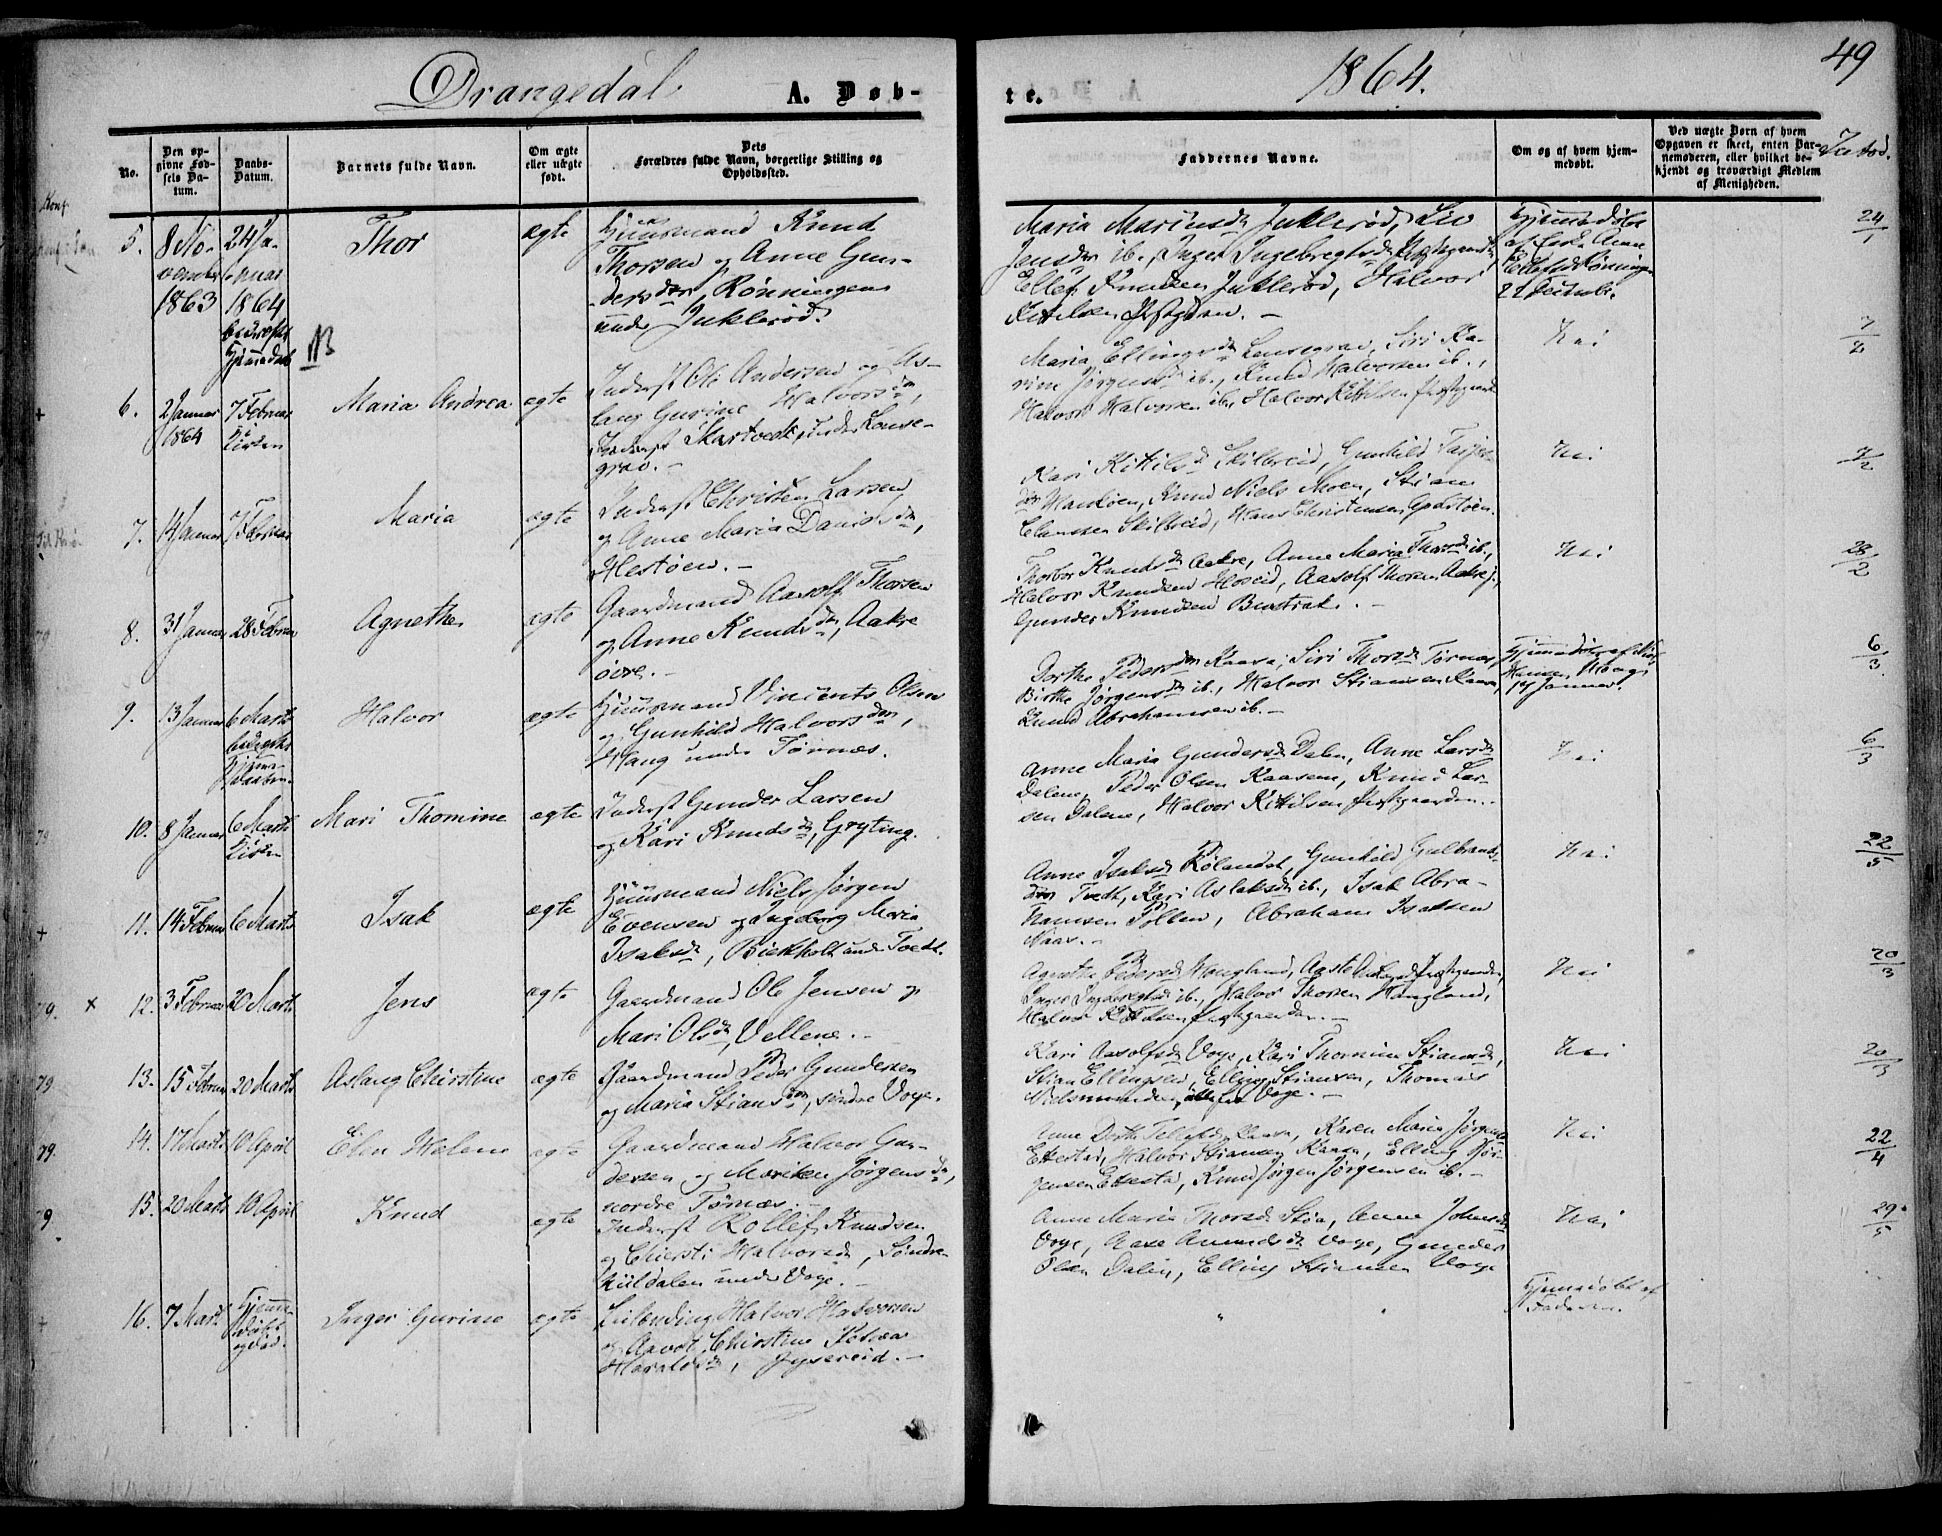 Drangedal A. Døb-
te. 1864. 49
No.
Den op-
givne Fød-
sels Da-
tum.
Daabs-
Datum.
Barnets fulde Navn.
Om ægte
eller uægte
født.
Dets
Forældres fulde Navn, borgerlige Stilling og
Opholdssted.
Faddernes Navne.
Om og af hvem hjem-
medøbt.
Ved uægte Børn af hvem
Opgaven er skeet, enten Bar-
nemoderen, eller hvilket be-
kjendt og troværdigt Medlem
af Menigheden.
5. 8 No-
vember
1863
24 Ja-
nuar
1864
Thor
ægte
Huusmand Knud
Thorsen og Anne Gun-
dersdr, Rønningen
under Juklerød.
Maria Mariusd Juklerød, Liv
Jensdr ib., Inger Ingebregtsd
Ellef Knudsen Juklerød, Halvor
24/1
6. 2 Januar
1864
7 Februar
Kirken
Maria Andrea
ægte
Inderst Ole Andersen og As-
laug Gurine Halvorsdr,
under Lonse-
grav.
Maria Ellingsd Lonsegrav, Siri Ka-
rine Jørgensd ib., Knud Halvorsen ib.,
Halvor Halvorsen ib., Halvor Kittilsen
Nei
7/2
7. 14 Januar
7 Februar
Maria
ægte
Inderst Christen Larsen
og Anne Maria Danielsdr,
Hestøen.
Kari Kittilsd Skilbreid, Gunhild Tarjes-
dr Knud Niels Moen, Stian
Clausen Skilbreid, Hans Christensen
Nei
7/2
8. 31 Januar
28 Februar
Agnethe
ægte
Gaardmand Aasolf Thorsen
og Anne Knudsdr, Aakre
øvre.
Thorbor Knudsd Aakre, Anne Maria Thorsd ib.,
Halvor Knudsen Hoseid, Aasolf Thorsen Aakre,
Gunder Knudsen
Nei
28/2
9. 13 Januar
6 Marts
Halvor
ægte
Huusmand Vincents Olsen
og Gunhild Halvorsdr,
Haug under Tørnæs.
Dorthe Pedersdr Kaasa, Siri Thorsd Tørnæs,
Birthe Jørgensd ib., Halvor Stiansen Kaasa,
Knud Abrahamsen ib.
6/3
10. 8 Januar
6 Marts
Kirken
Mari Thomine
ægte
Inderst Gunder Larsen
og Kari Knudsd, Gryting.
Anne Maria Gundersd Dalen, Anne Larsd
Dalene, Peder Olsen Kaasene, Knud Lar-
sen Dalene, Halvor Kittilsen Præstgaarden.
Nei
6/3
11. 14 Februar
6 Marts
Isak
ægte
Huusmand Niels Jørgen
Evensen og Ingeborg Maria
Isaksd, Birkholt under Tvedt.
Anne Isaksd Rølandet, Gunhild Gulbrands-
dr Tvedt, Kari Aslaksd ib., Isak Abra-
hamsen Pollen, Abraham Isaksen
Naas.
Nei
22/5
12. 3 Februar
20 Marts
Jens
ægte
Gaardmand Ole Jensen og
Mari Olsd, Vellene.
Agnethe Pedersd Haugland, Aaste
Inger Ingebregtsd ib., Halvor Thorsen Haugland,
Halvor Kittilsen Præstgaarden.
Nei
20/3
13. 15 Februar
20 Marts
Aslaug Chirstine
ægte
Gaardmand Peder Gundersen
og Maria Stiansdr, søndre Voje.
Kari Aasolfsd Voje, Kari Thomine Stiansd,
Stian Ellingsen, Elling Stiansen, Thomas
Nielsmundsen, alle fra Voje.
Nei
20/3
14. 17 Marts
10 April
Elen Helene
ægte
Gaardmand Halvor Gun-
dersen og Mariken Jørgensd,
nordre Tørnæs.
Anne Dorth Kaasa, Karen Maria Jørgensd
Ettestad, Halvor Stiansen Kaasa, Elling Jør-
gensen Ettestad, Knud Jørgen Jørgensen ib.
Nei
22/4
15. 20 Marts
10 April
Knud
ægte
Inderst Rollef Knudsen
og Chirsti Halvorsd, Søndre
under Voje.
Anne Maria Thorsd Støa, Anne Johnsd
Voje, Aase Amundsd Voje, Gunder
Olsen Dalen, Elling Stiansen Voje
Nei
29/5
16. 7 Marts
Hjemme-
døbt
og død.
Inger Gurine
ægte
Halvor Halvorsen
og Chirstine
Haraldsd,
Hjemmedøbt af
Faderen.